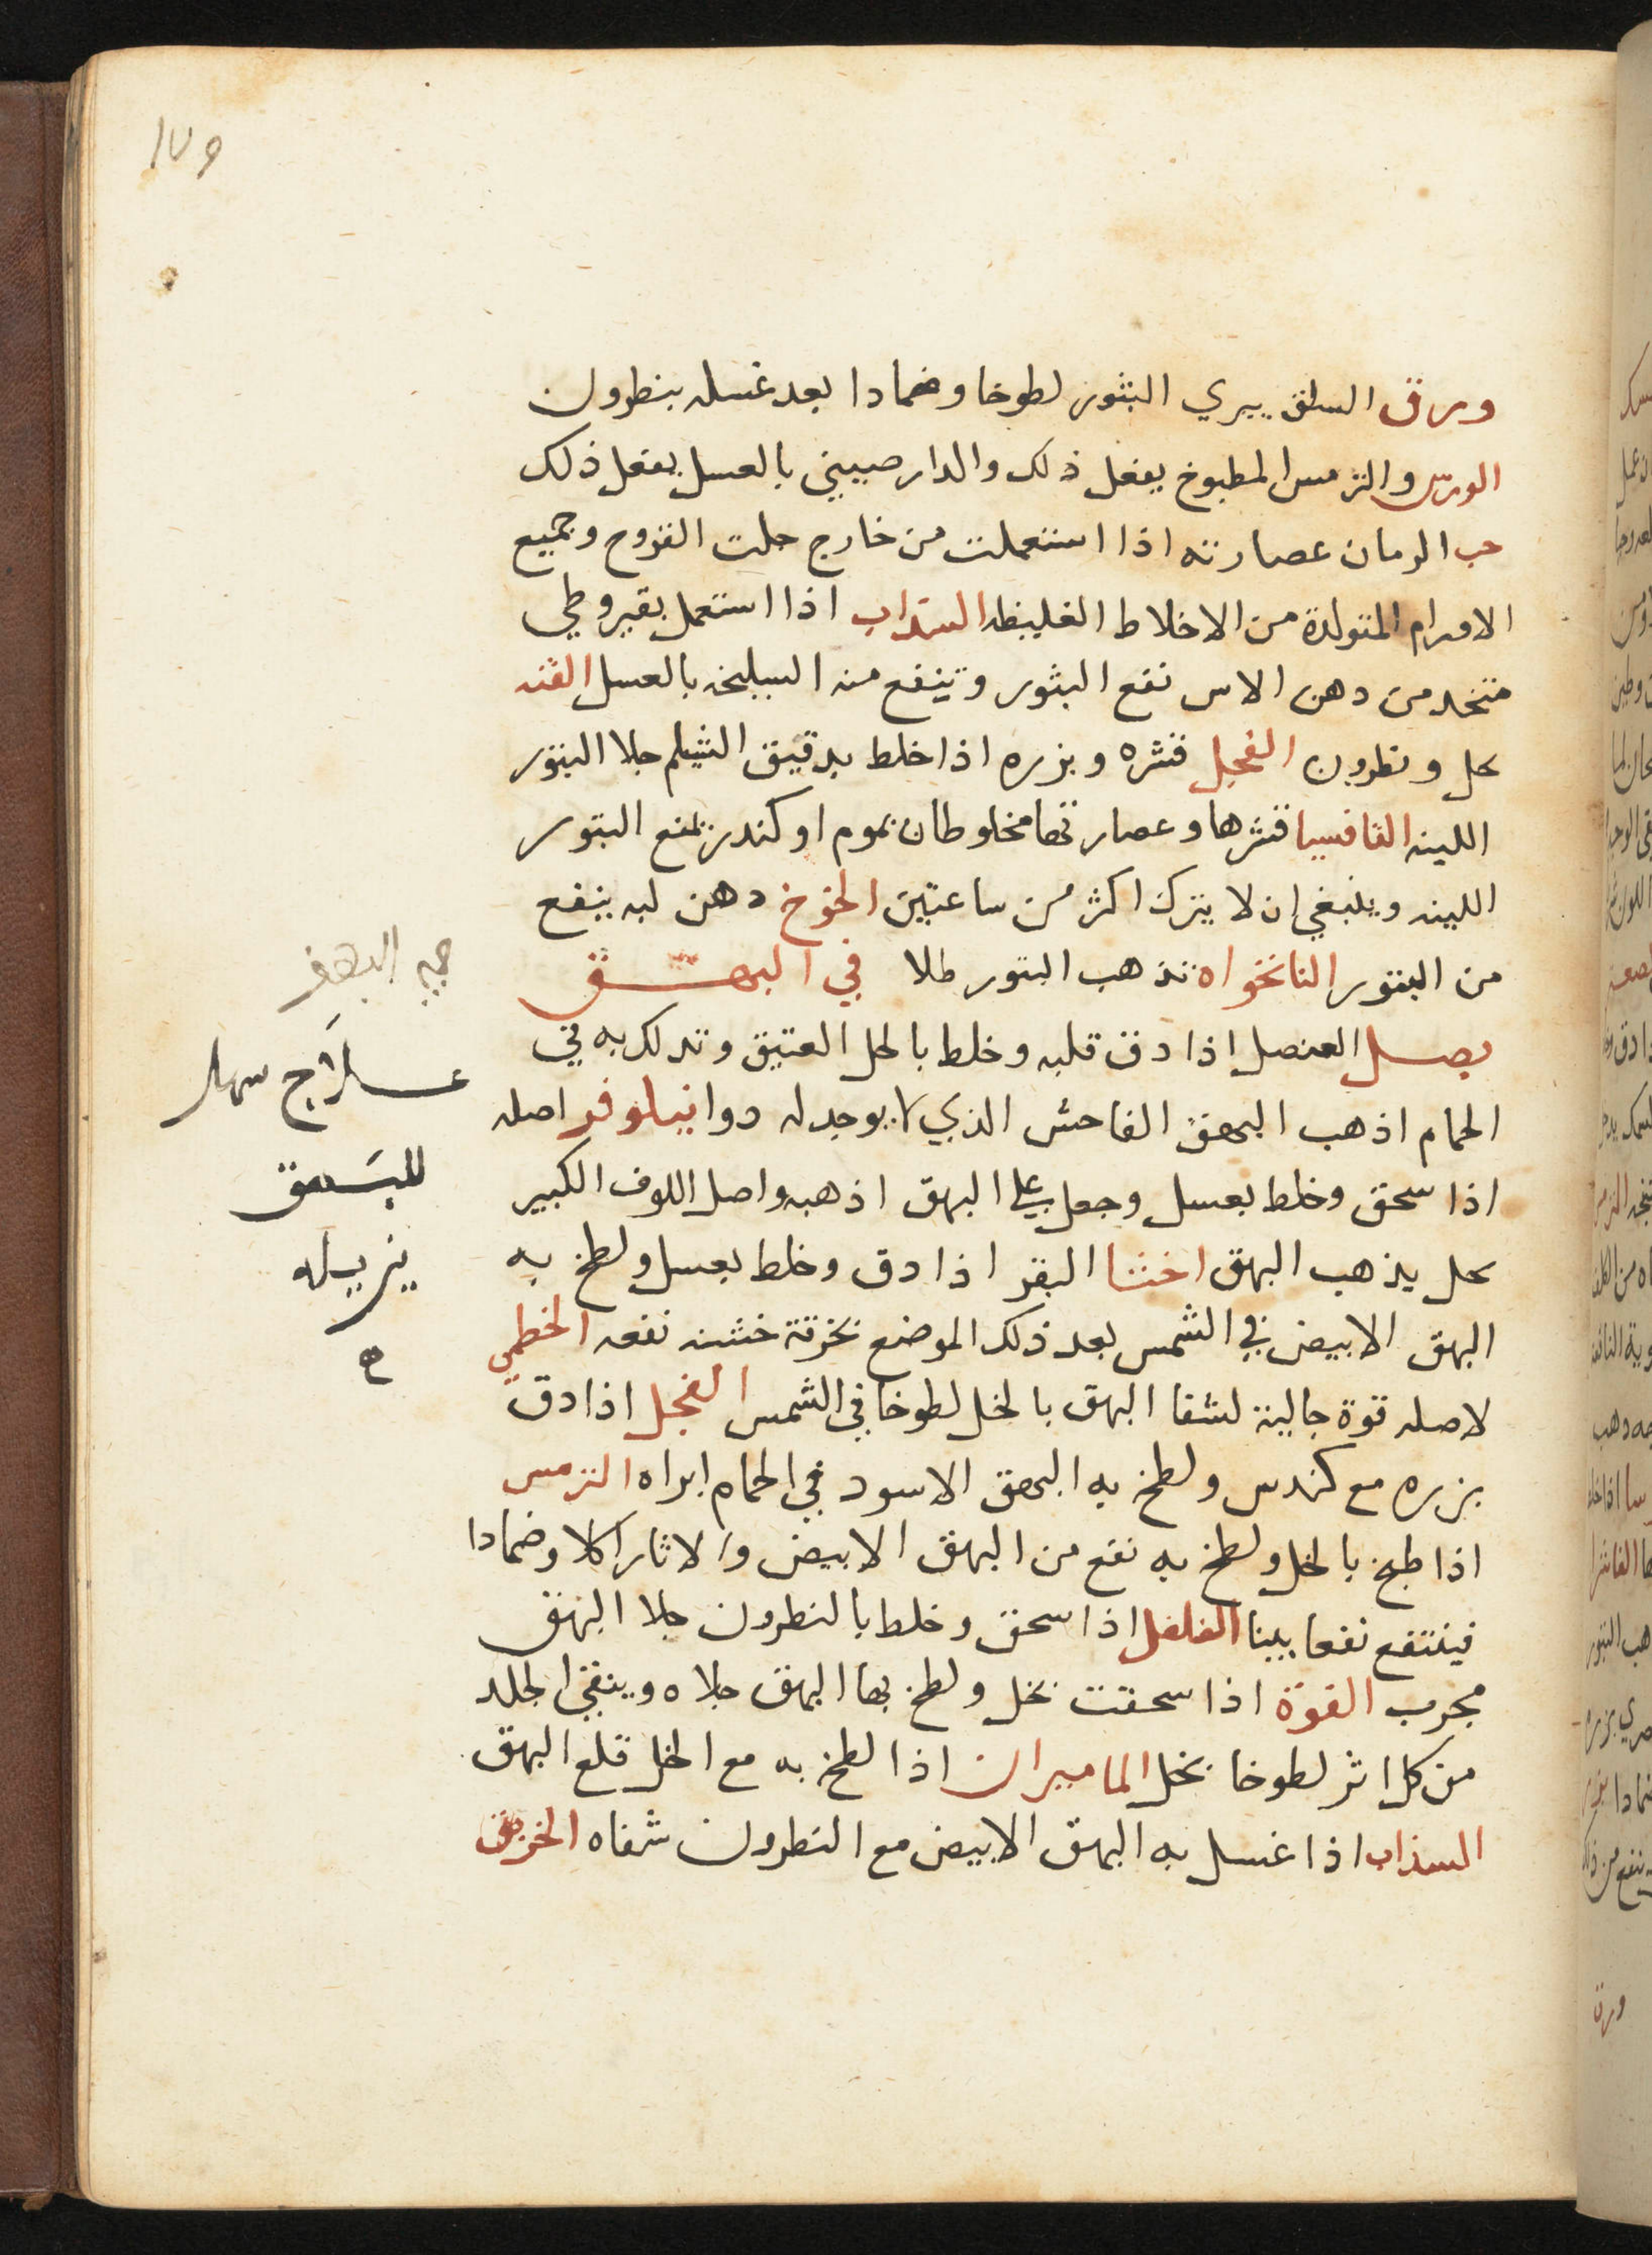 ورق السلق يبري البثور لطوخا وضمادا بعد غسله بنطرون
الورس والترمس المطبوخ يفعل ذلك والدار صيني بالعسل يفعل ذلك
حب الرمان عصارته اذا استعملت من خارج حلت القروح وجميع
الاورام المتولدة من الاخلاط الغليظه السذاب اذا استعمل بقيروطي
متخد من دهن الاس نفع البثور وينفع منه السليخه بالعسل القنه
بخل ونطرون الفجل قشره وبزره اذا خلط بدقيق الشيلم جلا البثور
اللينه الثافسيا قشرها وعصارتها مخلوطان بموم او كندر تمنع البتور
اللينه وينبغي ان لا يترك اكثر من ساعتين الخوخ دهن لبه ينفع
من البتور النانخواه تذهب البتور طلا في البهق
بصل العنصل اذا دق قلبه وخلط بالخل العتيق وتدلك به في
الحمام اذهب البهق الفاحش الذي لا يوجد له دوا نيلوفر اصله
اذا سحق وخلط بعسل وجعل علي البهق اذهبه واصل اللوف الكبير
بخل يذهب البهق اخثا البقر اذا دق وخلط بعسل ولطخ به
البهق الابيض في الشمس بعد ذلك الموضع بخرقة خشنه نفعه الخطمي
لاصله قوة جالية لشفا البهق بالخل لطوخا في الشمس الفجل اذا دق
بزره مع كندس ولطخ به البهق الاسود في الحمام ابراه الترمس
اذا طبخ بالخل ولطخ به نفع من البهق الابيض والاثار اكلا وضمادا
فينتفع نفعا بينا الفلفل اذا سحق وخلط بالنطرون جلا البهق
مجرب الفوة اذا سحقت بخل ولطخ بها البهق جلاه وينقي الجلد
من كل اثر لطوخا بخل الماميران اذا لطخ به مع الخل قلع البهق
السذاب اذا غسل به البهق الابيض مع النطرون شفاه الخربق
البهق
علاج سهل
للبهق
يزيله